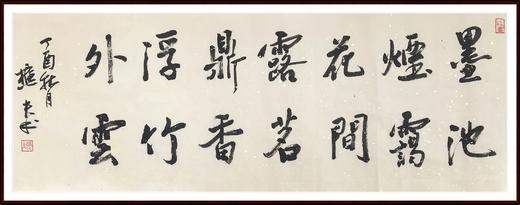 墨池
煙靄
花間
露茗
鼎香
浮竹
外雲
丁酉秋月